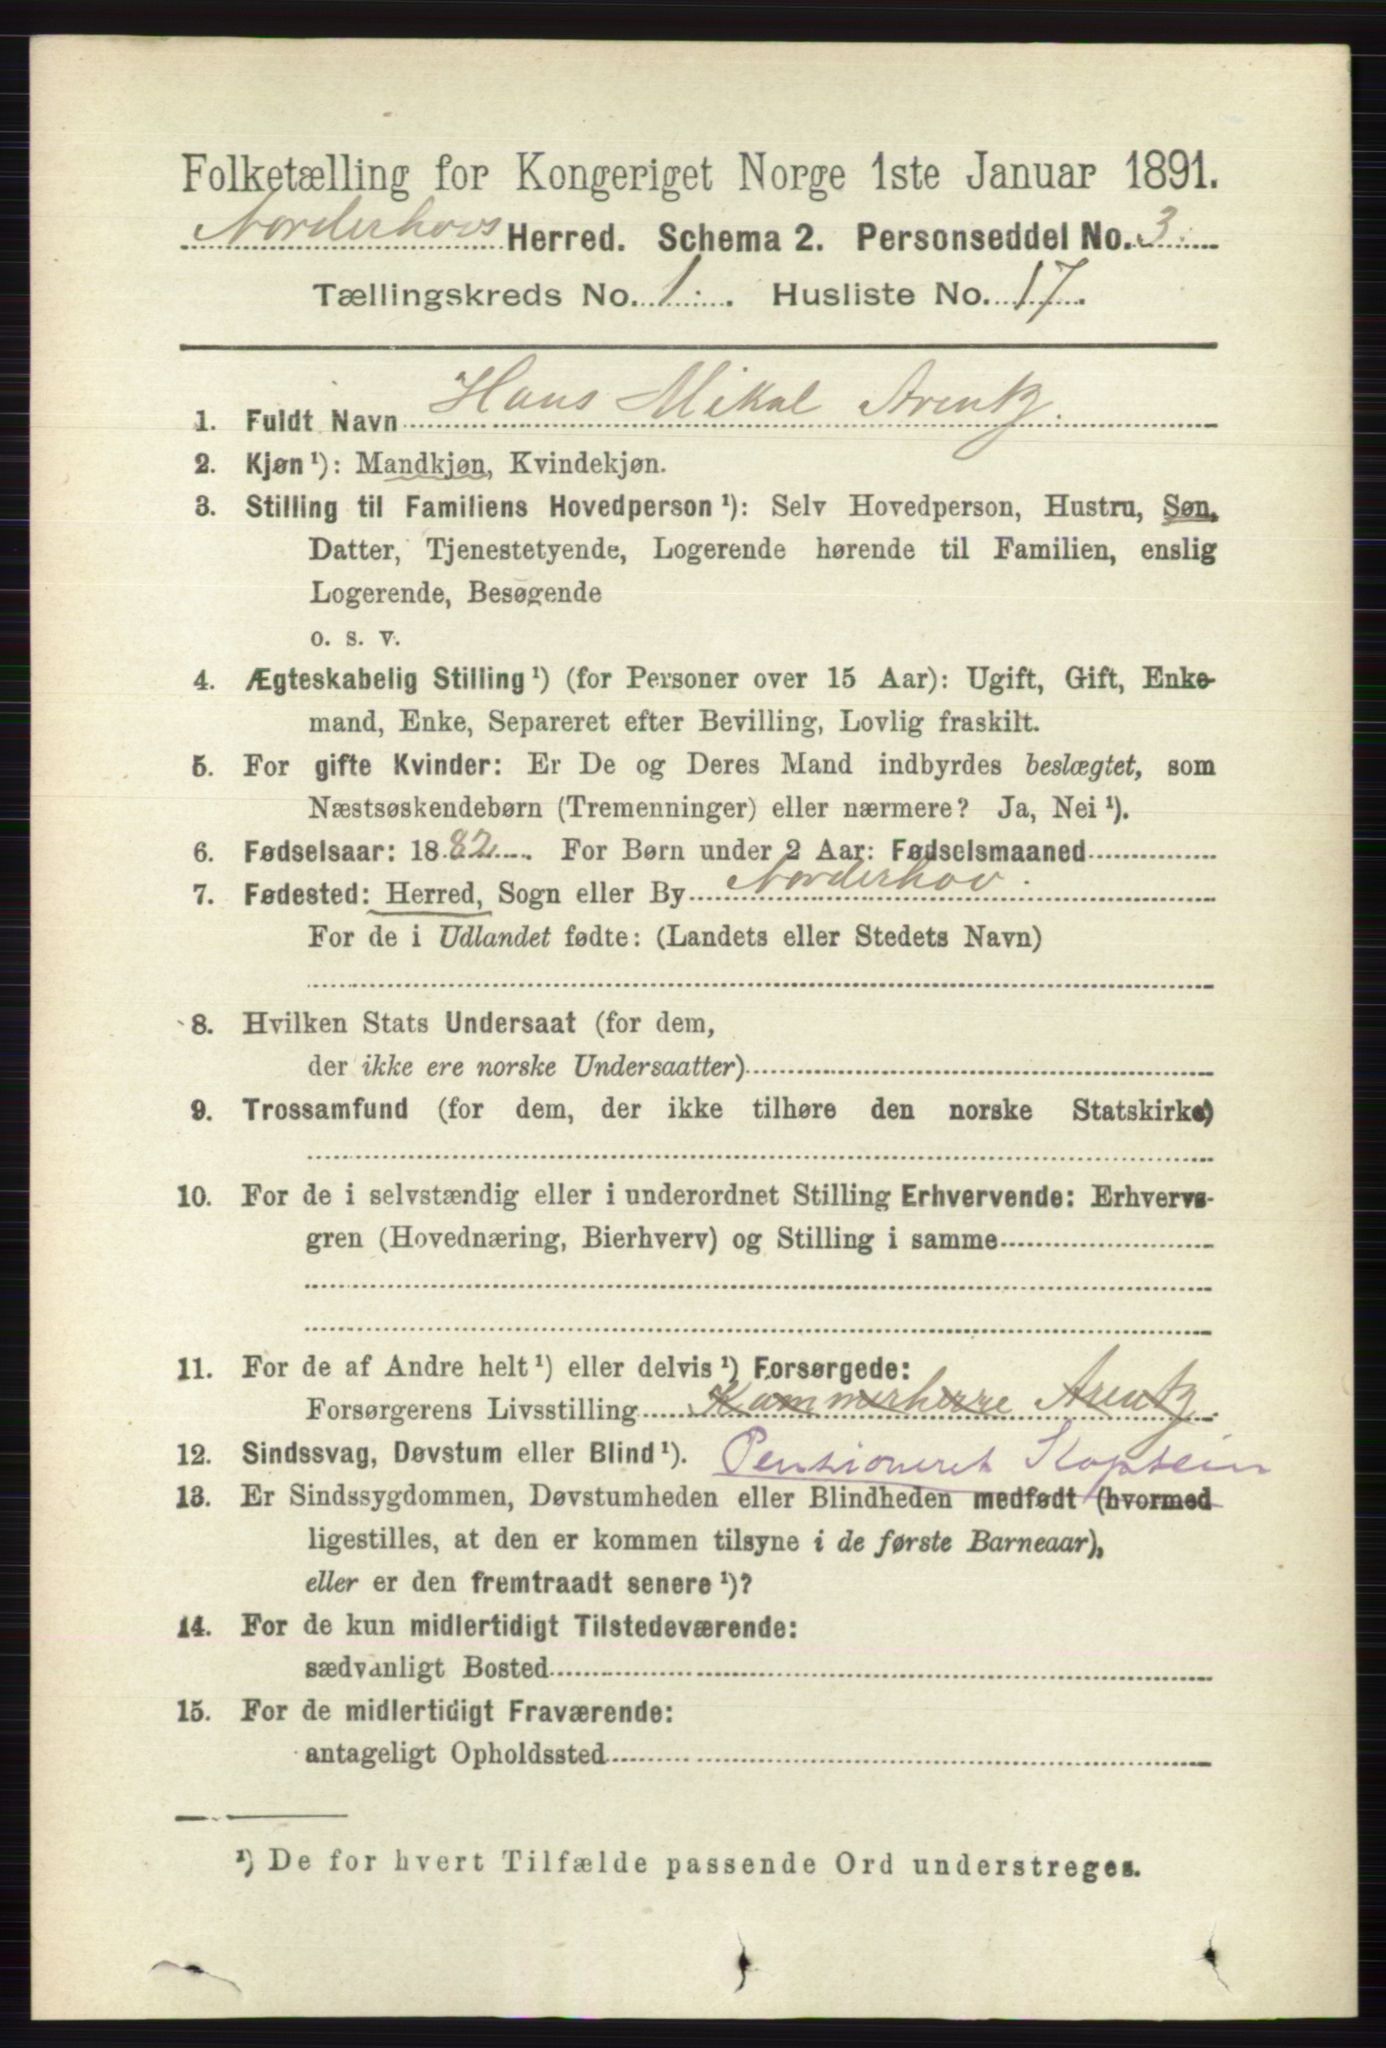 Folketælling for Kongeriget Norge 1ste Januar 1891.
Norderhovs Herred. Schema 2. Personseddel No. 3.
Tællingskreds No. 1. Husliste No. 17.
1. Fuldt Navn Hans Mikal Arentz.
2. Kjøn ¹): Mandkjøn, Kvindekjøn.
3. Stilling til Familiens Hovedperson ¹): Selv Hovedperson, Hustru, Søn,
Datter, Tjenestetyende, Logerende hørende til Familien, enslig
Logerende, Besøgende
o. s. v.
4. Ægteskabelig Stilling ¹) (for Personer over 15 Aar): Ugift, Gift, Enke-
mand, Enke, Separeret efter Bevilling, Lovlig fraskilt.
5. For gifte Kvinder: Er De og Deres Mand indbyrdes beslægtet, som
Næstsøskendebørn (Tremenninger) eller nærmere? Ja, Nei ¹).
6. Fødselsaar: 1882. For Børn under 2 Aar: Fødselsmaaned
7. Fødested: Herred, Sogn eller By Norderhov.
For de i Udlandet fødte: (Landets eller Stedets Navn)
8. Hvilken Stats Undersaat (for dem,
der ikke ere norske Undersaatter)
9. Trossamfund (for dem, der ikke tilhøre den norske Statskirke)
10. For de i selvstændig eller i underordnet Stilling Erhvervende: Erhvervs-
gren (Hovednæring, Bierhverv) og Stilling i samme
11. For de af Andre helt ¹) eller delvis ¹) Forsørgede:
Forsørgerens Livsstilling Kammerherre Arentz.
12. Sindssvag, Døvstum eller Blind ¹). Pensioneret Kaptein
13. Er Sindssygdommen, Døvstumheden eller Blindheden medfødt (hvormed
ligestilles, at den er kommen tilsyne i de første Barneaar),
eller er den fremtraadt senere ¹)?
14. For de kun midlertidigt Tilstedeværende:
sædvanligt Bosted
15. For de midlertidigt Fraværende:
antageligt Opholdssted
¹) De for hvert Tilfælde passende Ord understreges.